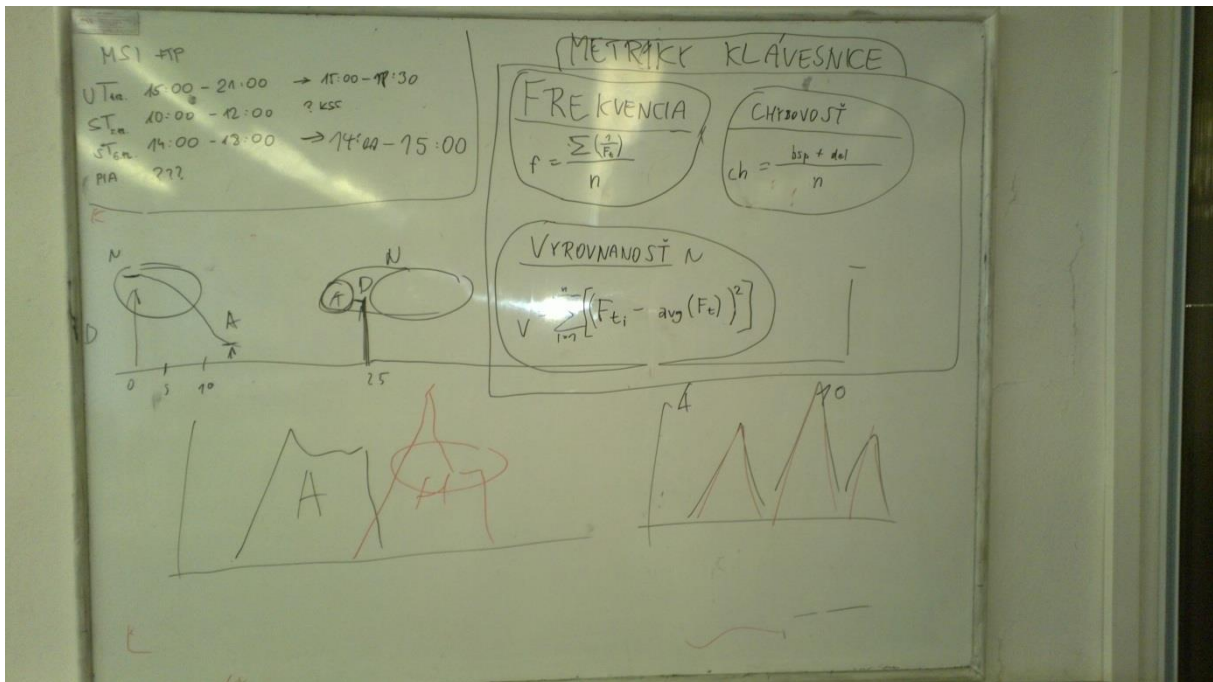 MSI + TP
UT 15:00 - 21:00 → 15:00 - 18:30
ST 10:00 - 12:00 ? KSS
ST 14:00 - 18:00 → 14:00 - 15:00
PIA ???
METRIKY KLÁVESNICE
FREKVENCIA
f = ∑(1/Ft) / n
CHYBOVOSŤ
ch = bsp + del / n
VYROVNANOSŤ N
V = ∑[(Ft_i - avg(Ft))²]
N
D
A
0 5 10
N
A D
25
A
A